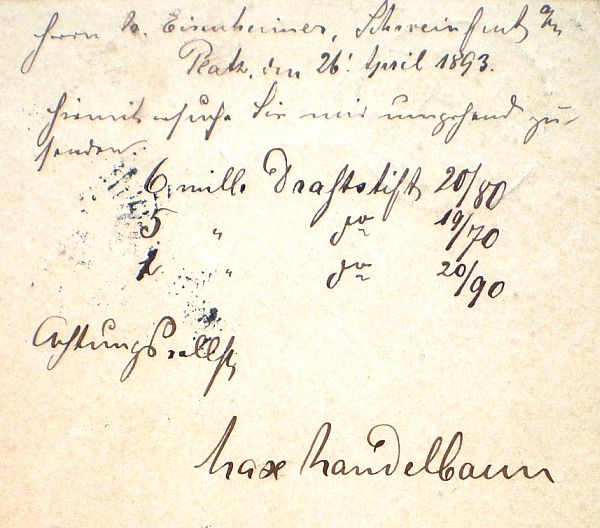 Herrn S. Eisenheimer, Schweinfurt a/M
Platz, den 26. April 1893.
Hiermit ersuche Sie mir umgehend zu-
senden.
6 mille Drahtstift 20/80
5 " do 19/70
1 " do 20/90
Achtungsvollst
Max Mandelbaum